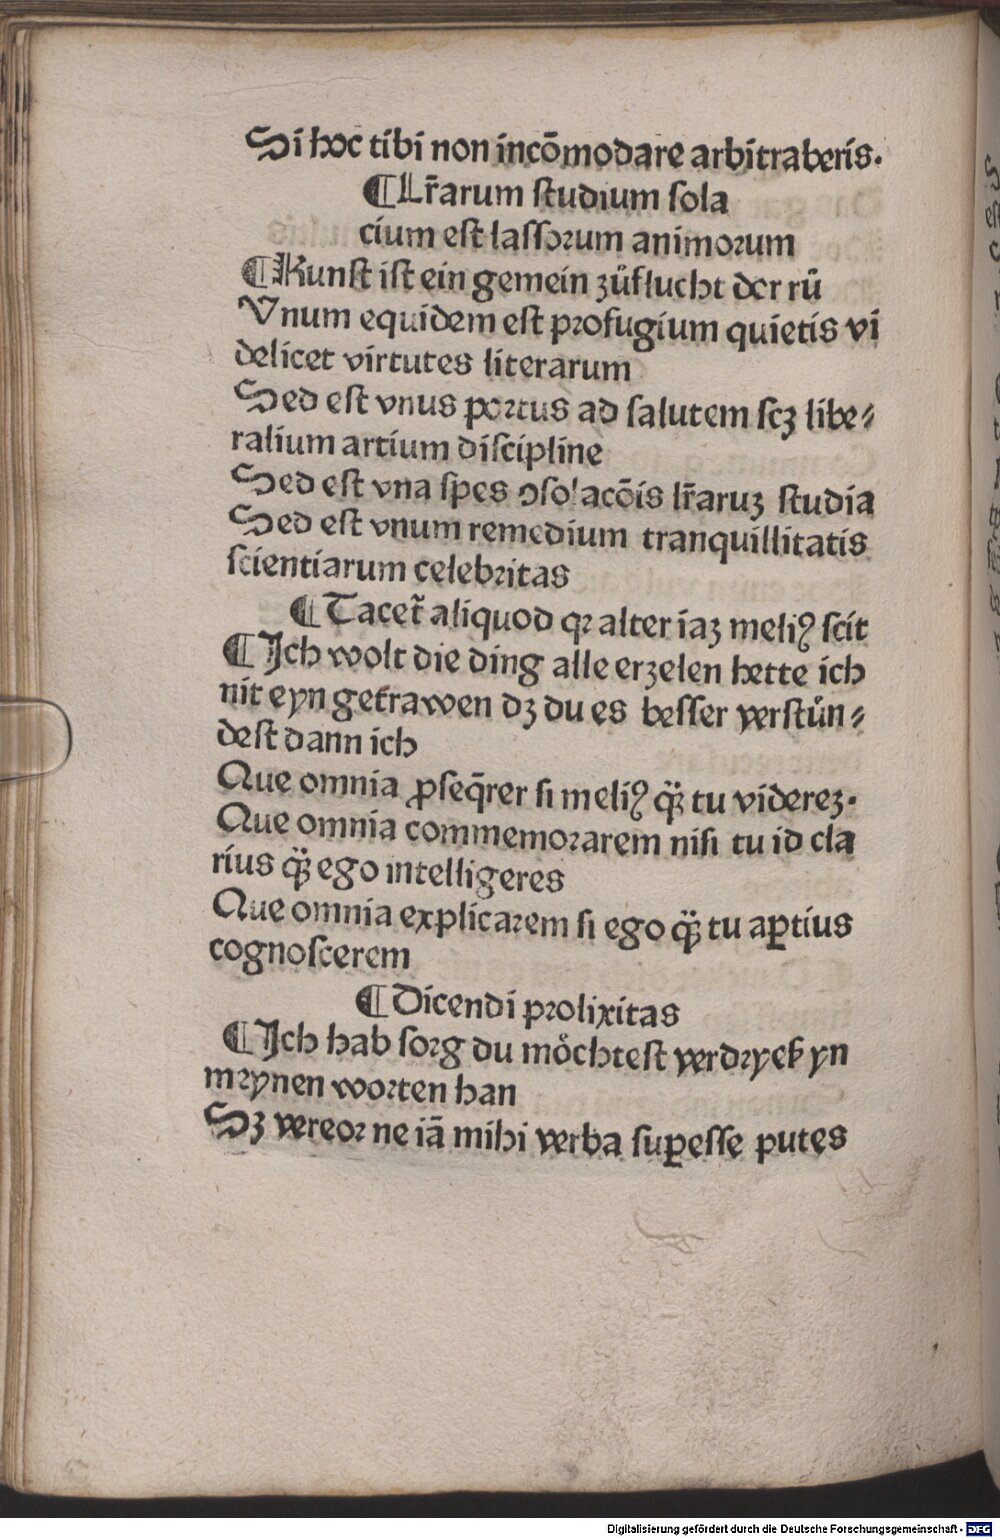 Si hoc tibi non incōmodare arbitraberis.
¶ Lr̄arum studium sola
cium est lassorum animorum
¶ Kunst ist ein gemein zůflucht der rů
Vnum equidem est profugium quietis vi
delicet virtutes literarum
Sed est vnus portus ad salutem scꝫ libe⸗
ralium artium discipline
Sed est vna spes ↄsolacōis lr̄aruꝫ studia
Sed est vnum remedium tranquillitatis
scientiarum celebritas
¶ Tacet̄ aliquod qꝛ alter iaꝫ meliꝰ scit
¶ Ich wolt die ding alle erzelen hette ich
nit eyn getrawen dꝫ du es besser verstůn⸗
dest dann ich
Que omnia ꝓseq̄rer si meliꝰ q̃ꝫ tu videreꝫ.
Que omnia commemorarem nisi tu id cla
rius q̃ꝫ ego intelligeres
Que omnia explicarem si ego q̃ꝫ tu aꝑtius
cognoscerem
¶ Dicendi prolixitas
¶ Ich hab sorg du möchtest verdryeß yn
mrynen worten han
Sꝫ vereor ne iā mihi verba suꝑesse putes
Digitalisierung gefördert durch die Deutsche Forschungsgemeinschaft - DFG